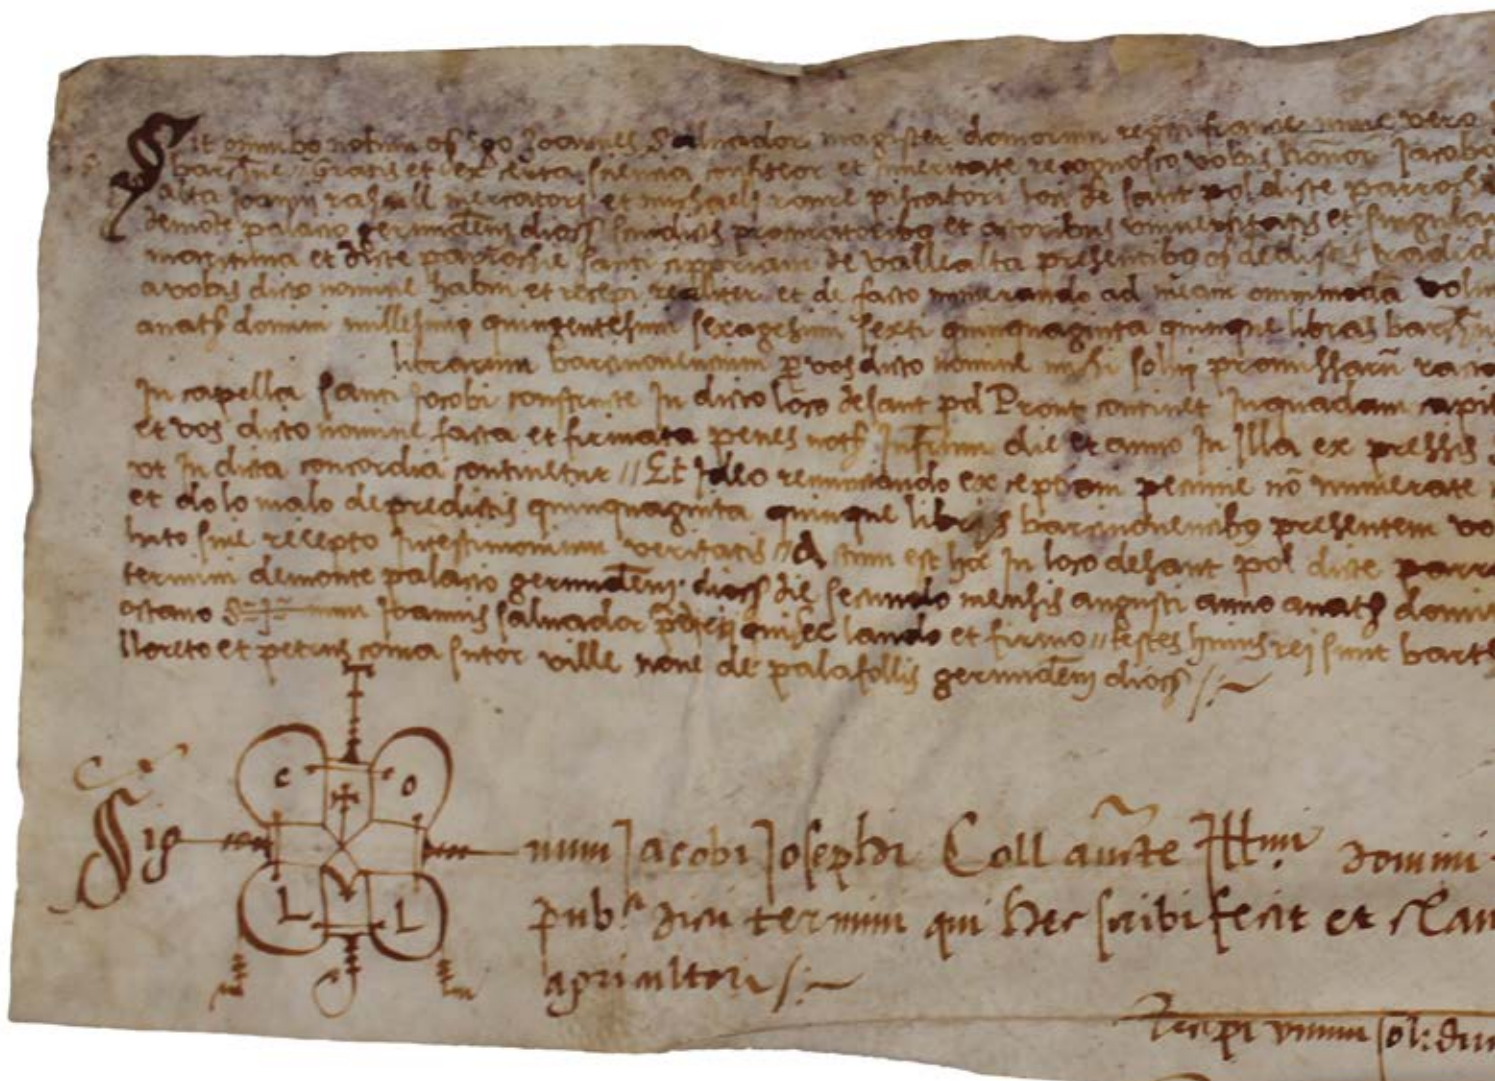 Sit omnibo notum q ego Joannes Salvador magister domorum regni francie nunc vero
barchne // Gratis et ex certa sciencia confiteor et in veritate recognosco vobis honor Jacobo
alta Joanni rahull mercatori et michaeli roure piscatori loci de sant pol dicte parrochi
demote palacio gerunden dioc sindicis procuratoribo et actoribus universitatis et singula
maritima et dicte parrochie santi cipriani de vallealta presentibo q dedistis tradidi
a vobis dicto nomine habui et recepi realiter et de facto numerando ad meam omnimoda volu
a naty domini millesimi quingentesimi sexagesimi sexti quinquaginta quinque libras barch
librarum barcinonencium p vos dicto nomine michi solvi promissharu racio
In capella santi Jocobi constructe In dicto loco de sant pol Pront continet Inquadam capi
et vos dicto nomine facta et firmata penes not Infrm die et anno In Illa ex pressis
ut In dicta concordia continetur // Et Ideo renunciando exceptioni pecunie no numerate
et dolo malo de predictis quinquaginta quinque libris barcinonencibo presentem vo
huto sine recepto Intestimonium veritatis // Actum est hoc In loco de sant pol dicte parro
termini demonte palacio gerunden dioc die secundo mensis augusti anno a naty domi
octavo S num Joannis salvador predicti qui hec laudo et firmo // testes huius rei sunt bart
lloreto et petrus coma sutor ville nove de palafollis gerunden dioc /:~
c o
L L
Sig num Jacobi Josephi Coll aucte Illm domini
pub dicti termini qui hec scribi fecit et clau
agricultori /:~
Recepi unum sol: du